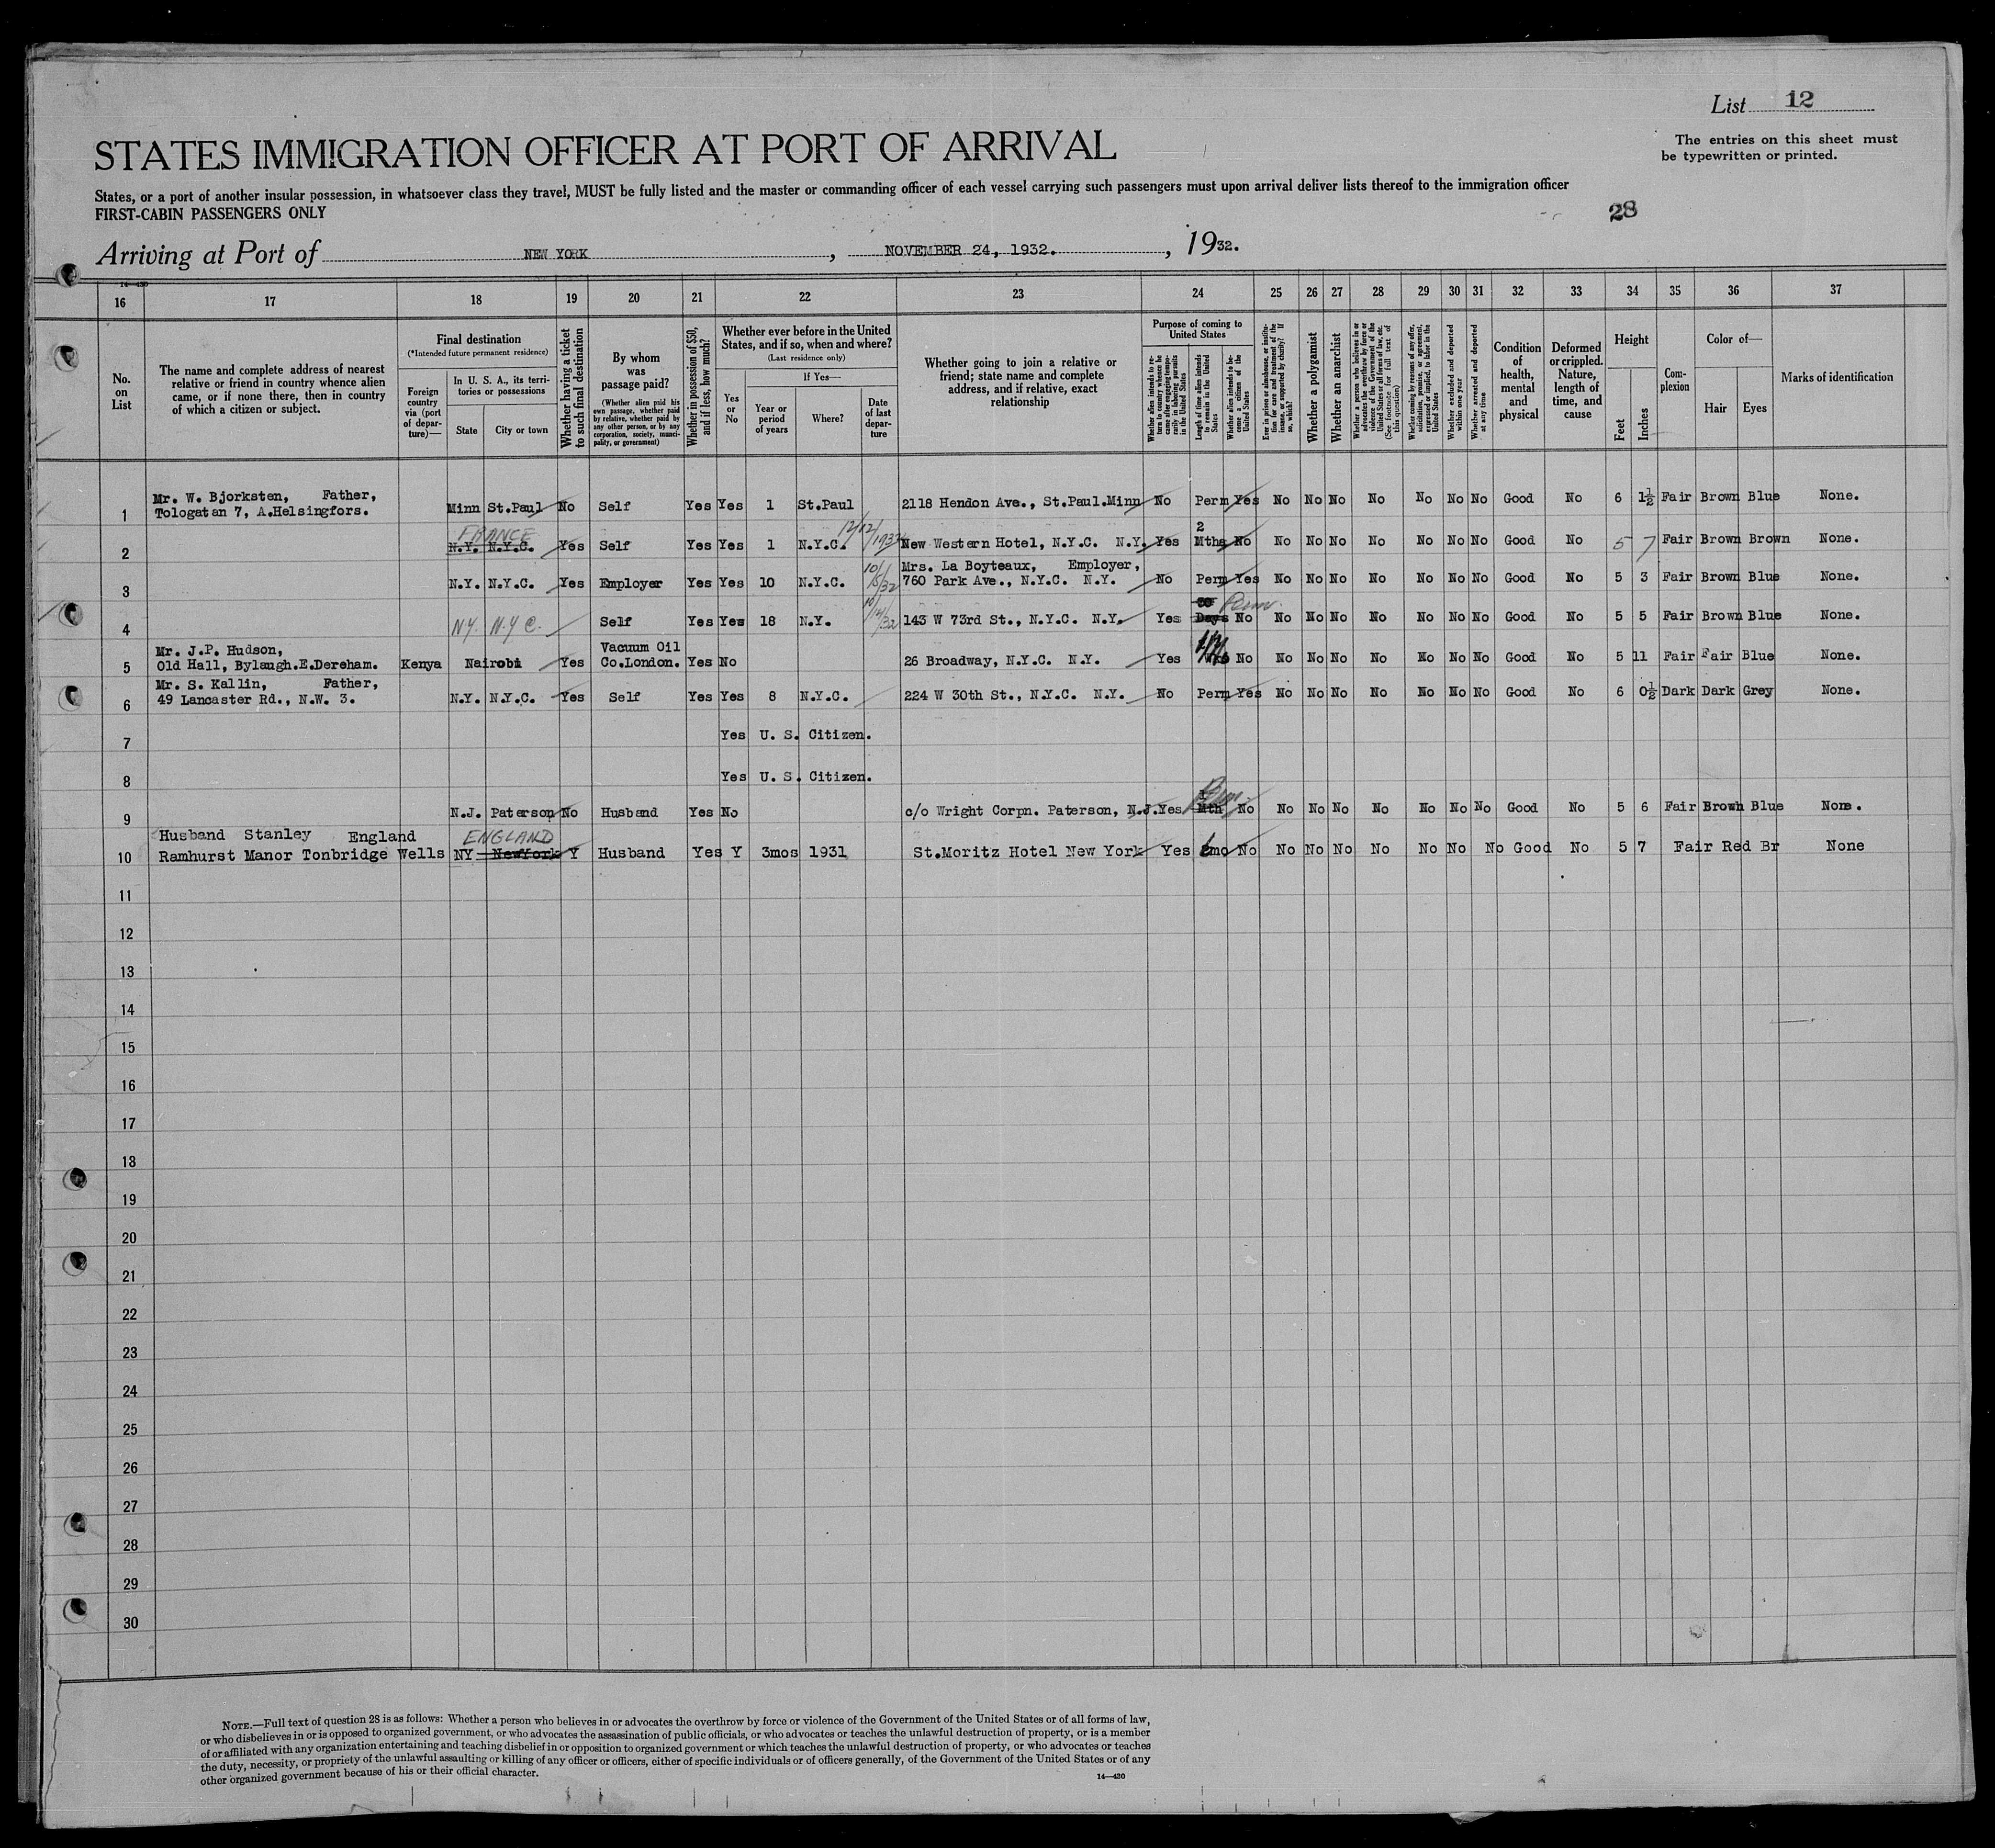 List 12
The entries on this sheet must
be typewritten or printed.
STATES IMMIGRATION OFFICER AT PORT OF ARRIVAL
States, or a port of another insular possession, in whatsoever class they travel, MUST be fully listed and the master or commanding officer of each vessel carrying such passengers must upon arrival deliver lists thereof to the immigration officer
FIRST-CABIN PASSENGERS ONLY
28
Arriving at Port of NEW YORK, NOVEMBER 24, 1932., 1932.
14-430
16 17 18 19 20 21 22 23 24 25 26 27 28 29 30 31 32 33 34 35 36 37
No. on List
The name and complete address of nearest relative or friend in country whence alien came, or if none there, then in country of which a citizen or subject.
Final destination
(*Intended future permanent residence)
Foreign country via (port of departure)—
In U. S. A., its territories or possessions
State
City or town
Whether having a ticket to such final destination
By whom was passage paid?
(Whether alien paid his own passage, whether paid by relative, whether paid by any other person, or by any corporation, society, municipality, or government)
Whether in possession of $50, and if less, how much?
Whether ever before in the United States, and if so, when and where?
(Last residence only)
Yes or No
If Yes—
Year or period of years
Where?
Date of last departure
Whether going to join a relative or friend; state name and complete address, and if relative, exact relationship
Purpose of coming to United States
Whether alien intends to return to country whence he came after engaging temporarily in laboring pursuits in the United States
Length of time alien intends to remain in the United States
Whether alien intends to become a citizen of the United States
Ever in prison or almshouse, or institution for care and treatment of the insane, or supported by charity? If so, which?
Whether a polygamist
Whether an anarchist
Whether a person who believes in or advocates the overthrow by force or violence of the Government of the United States or all forms of law, etc. (See footnote for full text of this question)
Whether coming by reasons of any offer, solicitation, promise, or agreement, expressed or implied, to labor in the United States
Whether excluded and deported within one year
Whether arrested and deported at any time
Condition of health, mental and physical
Deformed or crippled. Nature, length of time, and cause
Height
Feet
Inches
Complexion
Color of—
Hair
Eyes
Marks of identification
Mr. W. Bjorksten, Father,
1 Tologatan 7, A.Helsingfors. Minn St.Paul No Self Yes Yes 1 St.Paul 2118 Hendon Ave., St.Paul.Minn No Perm Yes No No No No No No No Good No 6 1½ Fair Brown Blue None.
FRANCE 12/12/193 2
2 N.Y. N.Y.C. Yes Self Yes Yes 1 N.Y.C. New Western Hotel, N.Y.C. N.Y. Yes Mths No No No No No No No No Good No 5 7 Fair Brown Brown None.
10/8/32 Mrs. La Boyteaux, Employer,
3 N.Y. N.Y.C. Yes Employer Yes Yes 10 N.Y.C. 760 Park Ave., N.Y.C. N.Y. No Perm Yes No No No No No No No Good No 5 3 Fair Brown Blue None.
Perm.
4 N.Y. N.Y.C. Self Yes Yes 18 N.Y. 143 W 73rd St., N.Y.C. N.Y. Yes Days No No No No No No No No Good No 5 5 Fair Brown Blue None.
Mr. J.P. Hudson, Vacuum Oil
5 Old Hall, Bylaugh.E.Dereham. Kenya Nairobi Yes Co.London. Yes No 26 Broadway, N.Y.C. N.Y. Yes No No No No No No No No Good No 5 11 Fair Fair Blue None.
Mr. S. Kallin, Father,
6 49 Lancaster Rd., N.W. 3. N.Y. N.Y.C. Yes Self Yes Yes 8 N.Y.C. 224 W 30th St., N.Y.C. N.Y. No Perm Yes No No No No No No No Good No 6 0½ Dark Dark Grey None.
7 Yes U. S. Citizen.
8 Yes U. S. Citizen.
Perm.
9 N.J. Paterson No Husband Yes No c/o Wright Corpn. Paterson, N.J. Yes Mth No No No No No No No No Good No 5 6 Fair Brown Blue None.
Husband Stanley England ENGLAND
10 Ramhurst Manor Tonbridge Wells NY NewYork Y Husband Yes Y 3mos 1931 St.Moritz Hotel New York Yes mo No No No No No No No No Good No 5 7 Fair Red Br None
11
12
13
14
15
16
17
18
19
20
21
22
23
24
25
26
27
28
29
30
NOTE.—Full text of question 28 is as follows: Whether a person who believes in or advocates the overthrow by force or violence of the Government of the United States or of all forms of law,
or who disbelieves in or is opposed to organized government, or who advocates the assassination of public officials, or who advocates or teaches the unlawful destruction of property, or is a member
of or affiliated with any organization entertaining and teaching disbelief in or opposition to organized government or which teaches the unlawful destruction of property, or who advocates or teaches
the duty, necessity, or propriety of the unlawful assaulting or killing of any officer or officers, either of specific individuals or of officers generally, of the Government of the United States or of any
other organized government because of his or their official character.
14—430